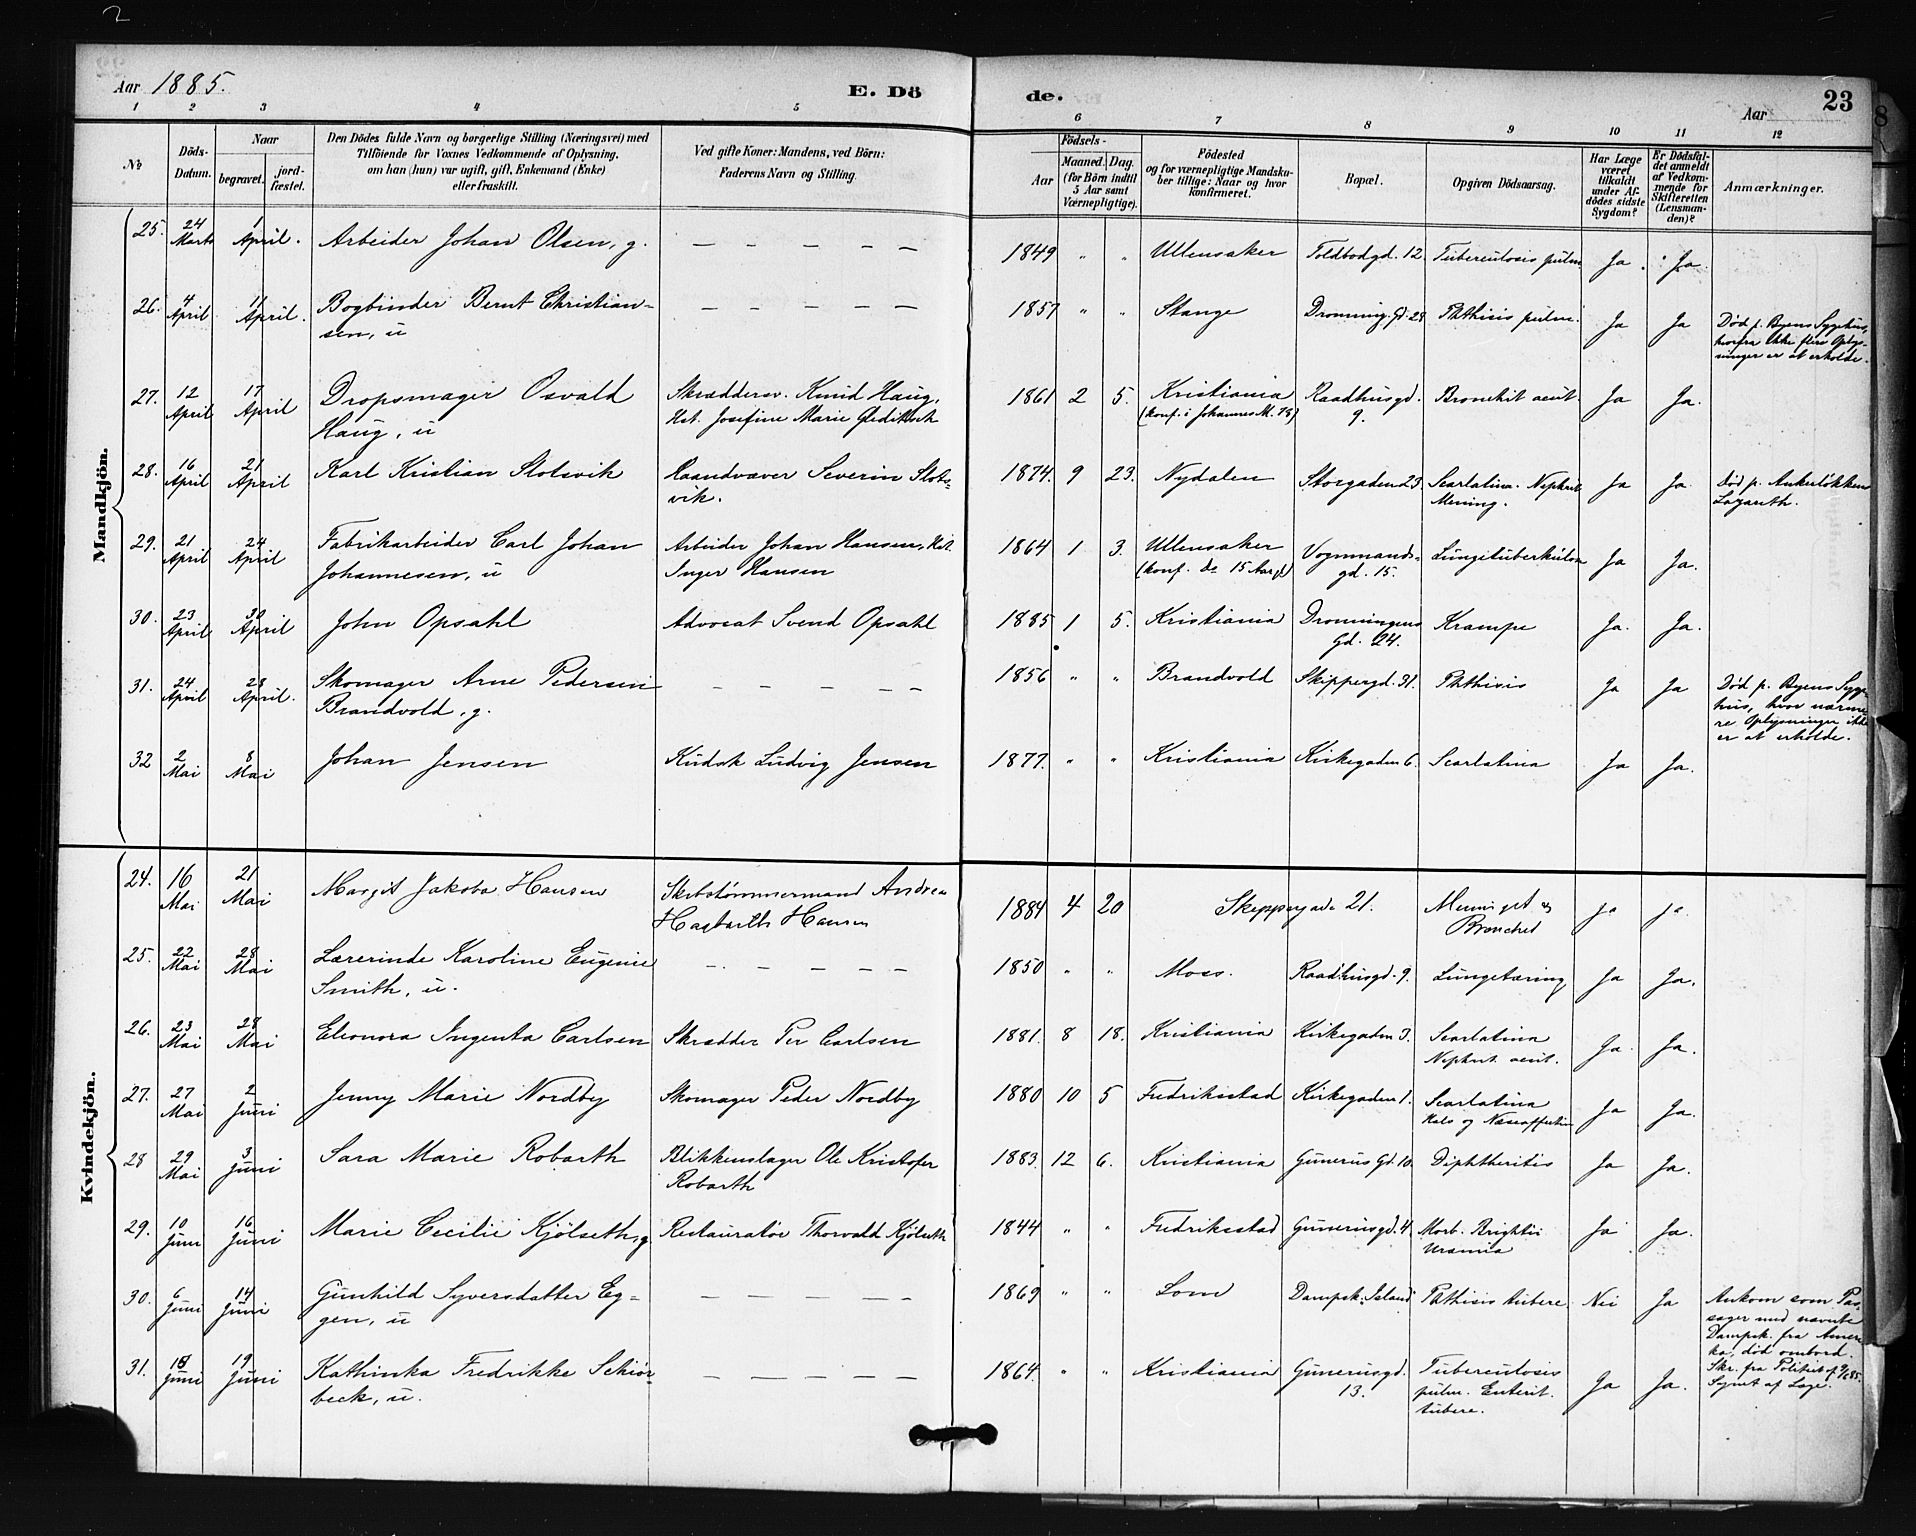 Aar 1885.
E. Döde.
Aar
23
1 2 3 4 5 6 7 8 9 10 11 12
No
Döds-Datum.
Naar
begravet.
jord-fæstet.
Den Dödes fulde Navn og borgerlige Stilling (Næringsvei) med
Tilföiende for Voxnes Vedkommende af Oplysning,
om han (hun) var ugift, gift, Enkemand (Enke)
eller fraskilt.
Ved gifte Koner: Mandens, ved Börn:
Faderens Navn og Stilling.
Födsels-
Aar
Maaned. Dag.
(for Börn indtil
5 Aar samt
Værnepligtige).
Födested
og for værnepligtige Mandska-
ber tillige: Naar og hvor
konfirmeret.
Bopæl.
Opgiven Dödsaarsag.
Har Læge
været
tilkaldt
under Af-
dödes sidste
Sygdom?
Er Dödsfal-
det anmeldt
af Vedkom-
mende for
Skifteretten
(Lensman-
den)?
Anmærkninger.
Mandkjön.
25. 24 Marts 1 April. Arbeider Johan Olsen, g. — — — — — 1849 " " Ullensaker Toldbodgd. 12. Tuberculosis pulm. Ja. Ja.
26. 4 April 11 April. Bogbinder Bernt Christian- — — — — — 1857 " " Stange Dronning. Gd. 28 Phthisis pulm. Ja Ja Död p. Byens Sygehus,
sen, u hvorfra ikke flere Oplys-
ninger er at erholde.
27. 12 April 17 April Dropsmager Osvald Skræddersv. Knud Haug, 1861 2 5. Kristiania Raadhusgd. Bronchit acut. Ja Ja.
Haug, u Hst. Josefine Marie Gleditsch (konf. i Johannes M. 75) 9.
28. 16 April 21 April Karl Kristian Slotsvik Haandvæver Severin Slots- 1874. 9 23. Nydalen Storgaden 23. Scarlatina. Nephrit. Ja Ja. Död p. Ankerlökkens
vik. Mening. Lazareth.
29. 21 April 24 April Fabrikarbeider Carl Johan Arbeider Johan Hansen, Hst. 1864 1 3. Ullensaker Vognmands- Lungetuberkulose Ja Ja.
Johannesen, u Inger Hansen (konf. do 15 Aar gl) gd. 15.
30. 23 April 30 April John Opsahl Advocat Svend Opsahl 1885 1 5. Kristiania Dronningens Krampe Ja. Ja.
Gd. 24.
31. 24 April 28 April. Skomager Arne Pedersen — — — — — 1856 " " Brandvold Skippergd. 31. Phthisis Ja Ja Död p. Byens Syge-
Brandvold, g. hus, hvor nærme-
re Oplysninger ikke
er at erholde.
32 2 Mai 8 Mai Johan Jensen Kudsk Ludvig Jensen 1877. " " Kristiania Kirkegaden 6. Scarlatina Ja Ja.
Kvindekjön.
24. 16 Mai 21 Mai Margit Jakoba Hansen Skibstømmermand Andrea 1884 4 20 Skippergade 21. Meninget & Ja Ja.
Hagbarth Hansen Bronchit
25. 22 Mai 28 Mai Lærerinde Karoline Eugenie — — — — — 1850 " " Moss. Raadhusgd. 9. Lungetæring Ja Ja.
Smith, u.
26. 23 Mai 28 Mai Eleonora Ingenta Carlsen Skrædder Per Carlsen 1881. 8 18. Kristiania Kirkegaden 3. Scarlatina Ja. Ja.
Nephrit. acut.
27. 27 Mai 2 Juni Jenny Marie Nordby Skomager Peder Nordby 1880 10 5 Fredriksstad Kirkegaden 1. Scarlatina Ja Ja.
Hals og Næseaffection
28 29 Mai 3 Juni Sara Marie Robarth Blikkenslager Ole Kristofer 1883. 12 6. Kristiania Gunerus Gd. 10. Diphtheritis Ja Ja.
Robarth
29. 10 Juni 16 Juni Marie Cecilie Kjölseth, g Restauratör Thorvald Kjölseth 1844 " " Fredriksstad Gunerusgd. 4. Morb. Brightii Ja Ja.
Uræmia
30. 6 Juni 14 Juni Gunhild Syversdatter Eg- — — — — — 1869 " " Lom Dampsk. "Island" Phthisis tubere. Nei Ja Ankom som Pas-
gen, u sager med nævnte
Dampsk. fra Ameri-
ka, död ombord.
Skr. fra Politiet af 9/6 85.
Synet af Læge.
31. 15 Juni 19 Juni Kathinka Fredrikke Schiör- — — — — — 1864. " " Kristiania Gunerusgd. Tuberculosis Ja Ja.
beck, u. 13. pulm. Enterit.
tubere.